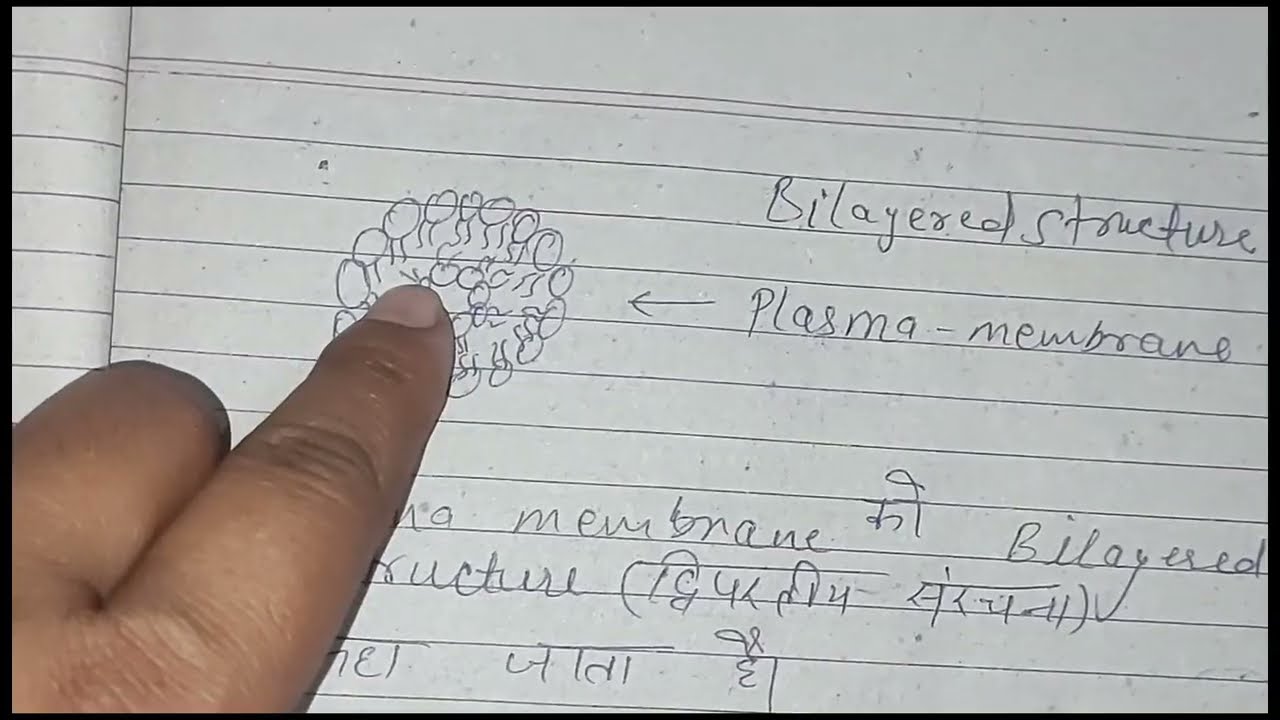 Bilayered structure
Plasma-membrane
membrane को Bilayered
ructure (द्विपरतीय संरचना)
जाता है।